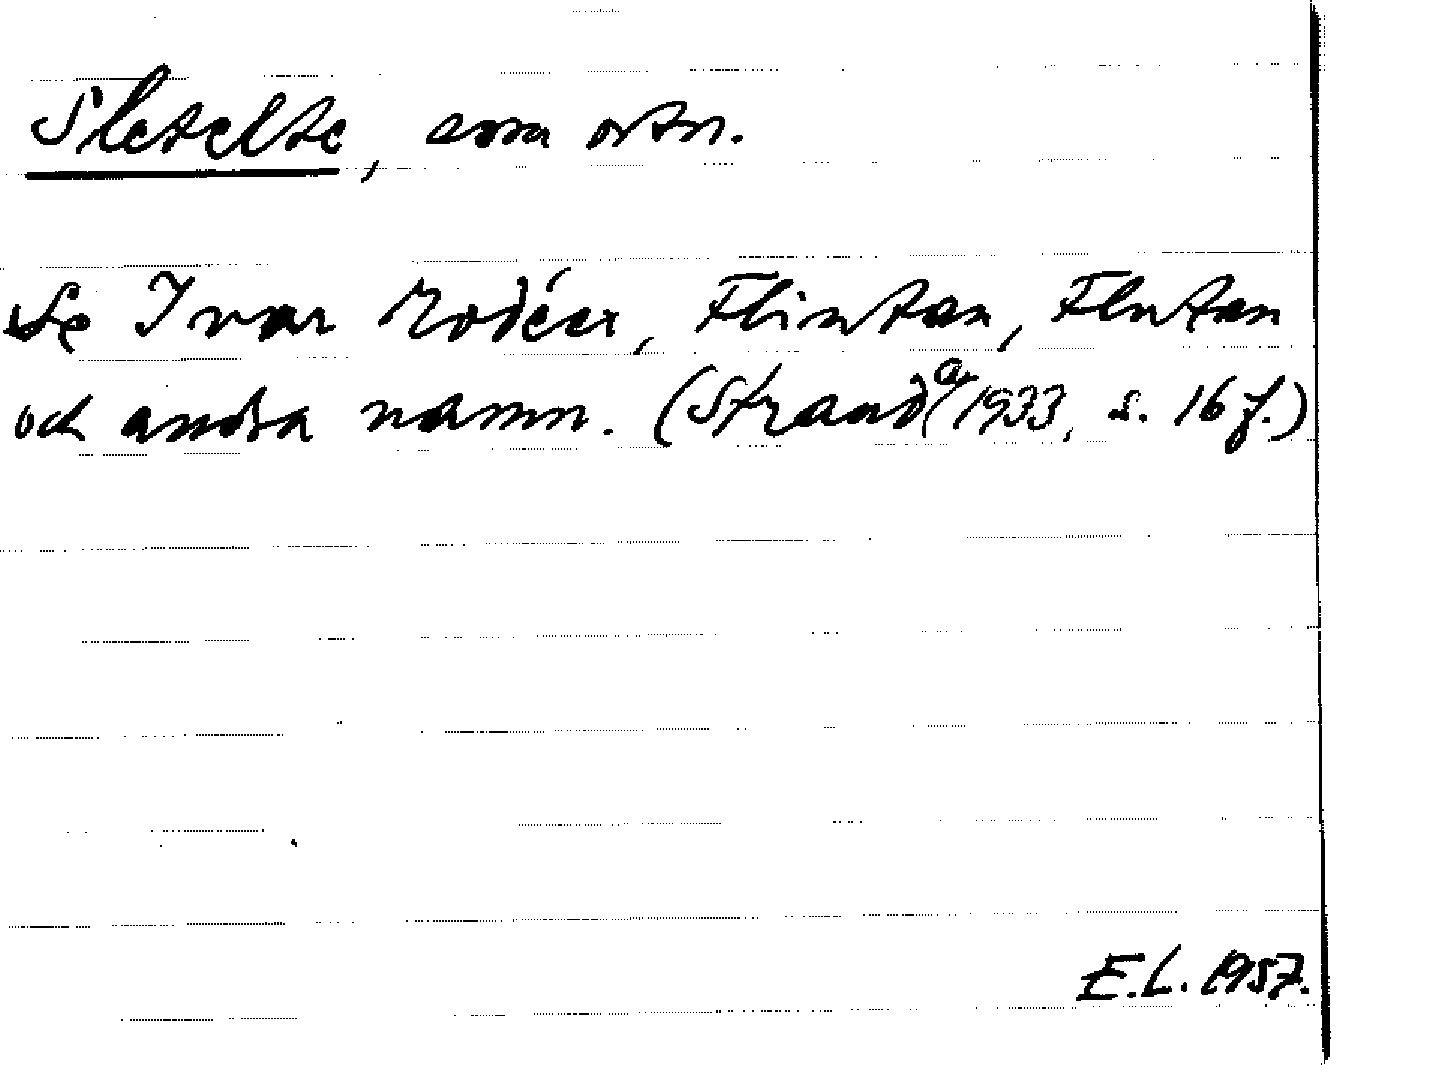 Sketelte, som ortn.
Se Ivar Modéer, Flintan, Flutan
och andra namn. (Stranda 1933, s. 16 f.)
E.L. 1957.